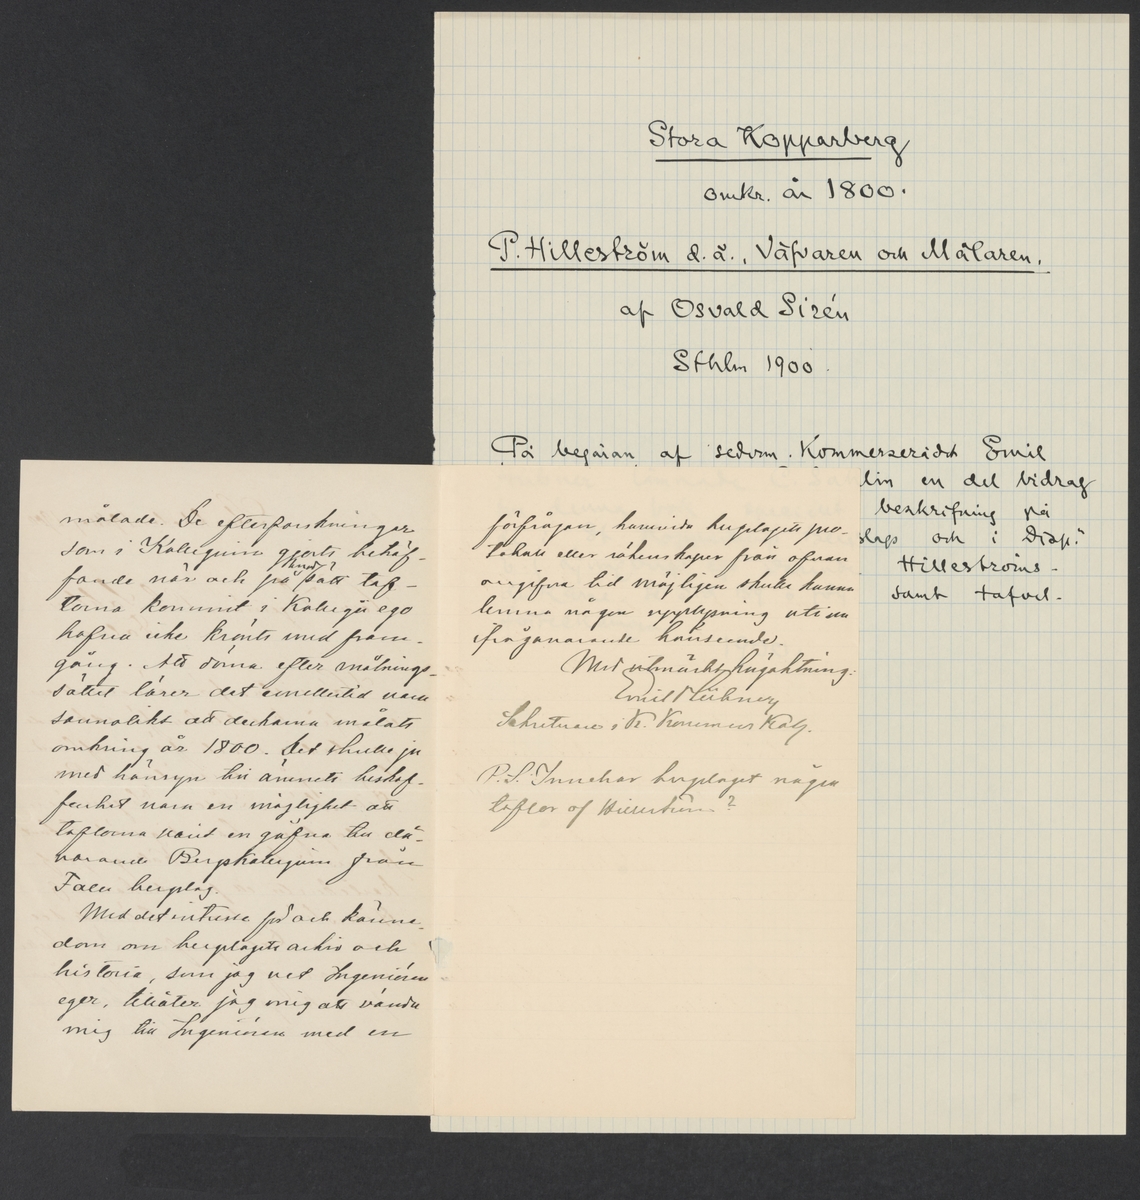 Stora Kopparberg
omkr. år 1800.
P. Hilleström d.ä., Väfvaren och Målaren.
af Osvald Sirén
Sthlm 1900.
På begäran af sederm. Kommerserådet Emil
lin en del bidrag
beskrifning på
slags och i Disp:s
Hilleströms-
samt tafvel-
målade. De efterforskningar
som i Kollegium gjorts beträf-
fande när och på hvad sätt taf-
lorna kommit i Kollegii ego
hafva icke krönts med fram-
gång. Att döma efter målnings-
sättet lärer det emellertid vara
sannolikt att desamma målats
omkring år 1800. Det skulle ju
med hänsyn till ämnets beskaf-
fenhet vara en möjlighet att
taflorna varit en gåfva till då-
varande Bergskollegium från
Falu bergslag.
Med det intresse för och känne-
dom om bergslagets arkiv och
historia, som jag vet Ingeniören
eger, tillåter jag mig att vända
mig till Ingeniören med en
förfrågan, huruvida bergslagets pro-
tokoll eller räkenskaper från ofvan
angifna tid möjligen skulle kunna
lemna någon upplysning uti nu
ifrågavarande hänseende.
Med utmärkt högaktning:
Emil Hübner
Sekreterare i K. Kommers Koll.
P.S. Innehar bergslaget några
taflor af Hilleström?